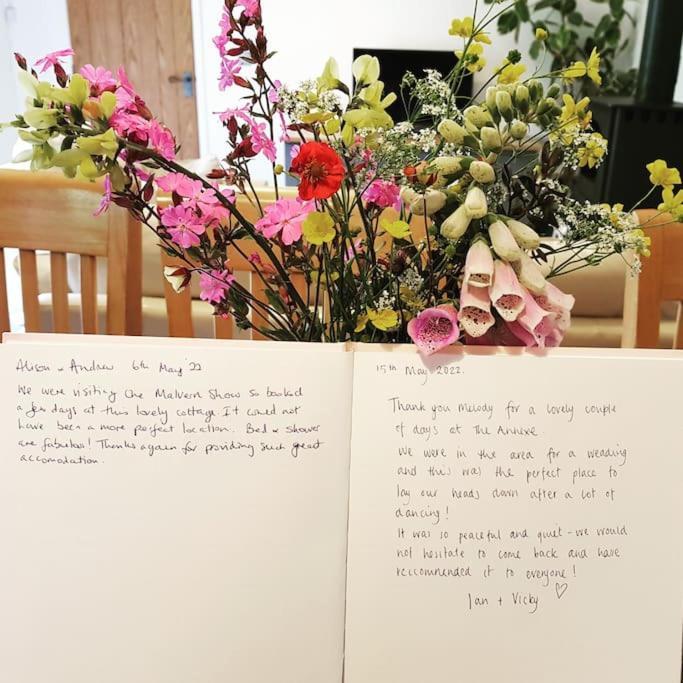 Alison + Andrew 6th May '22
We were visiting the Malvern Show so booked
a few days at this lovely cottage. It could not
have been a more perfect location. Bed + shower
are fabulous! Thanks again for providing such great
accomodation.
15th May 2022.
Thank you Melody for a lovely couple
of days at The Annexe.
We were in the area for a wedding
and this was the perfect place to
lay our heads down after a lot of
dancing!
It was so peaceful and quiet - we would
not hesitate to come back and have
reccommended it to everyone!
Ian + Vicky ♡